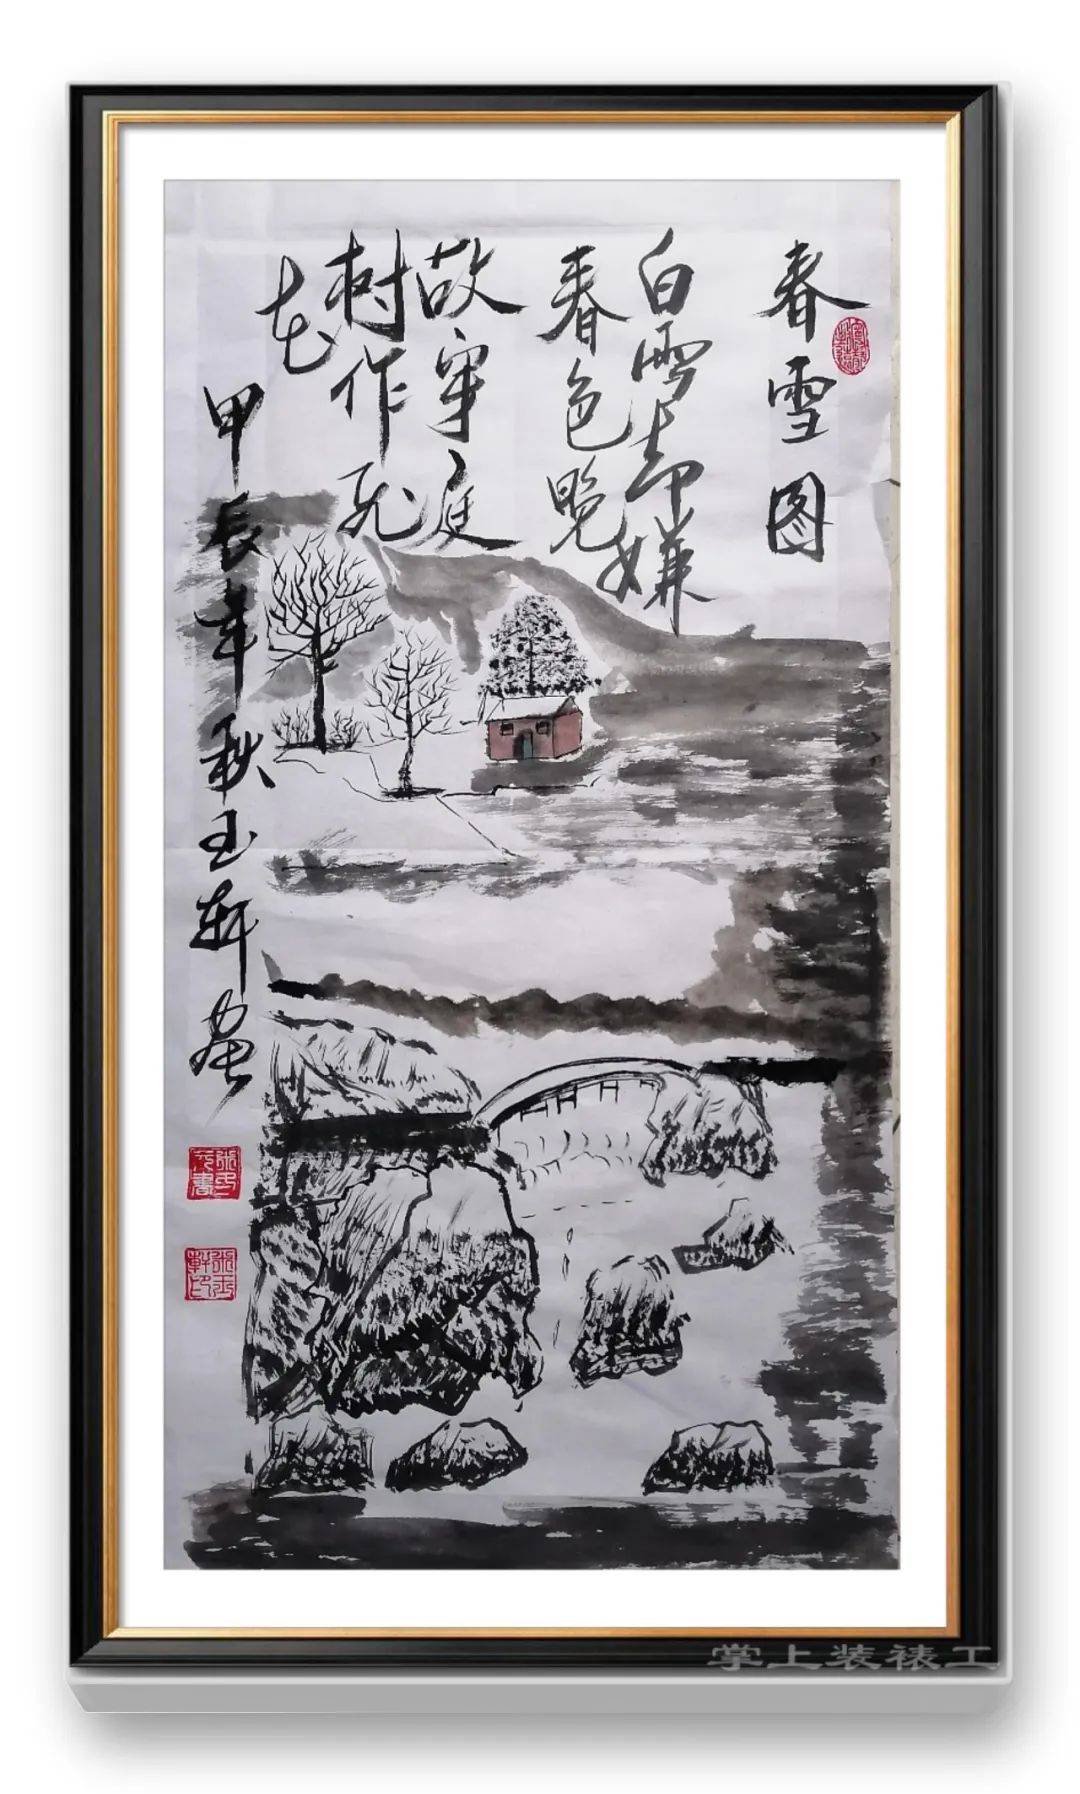 春雪图
白雪却嫌
春色晚
故穿庭
树作飞
花
甲辰年秋玉轩画
張玉軒印
掌上装裱工